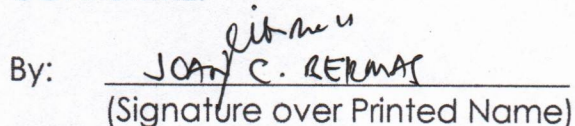 By: JOAN C. BERMAS
(Signature over Printed Name)